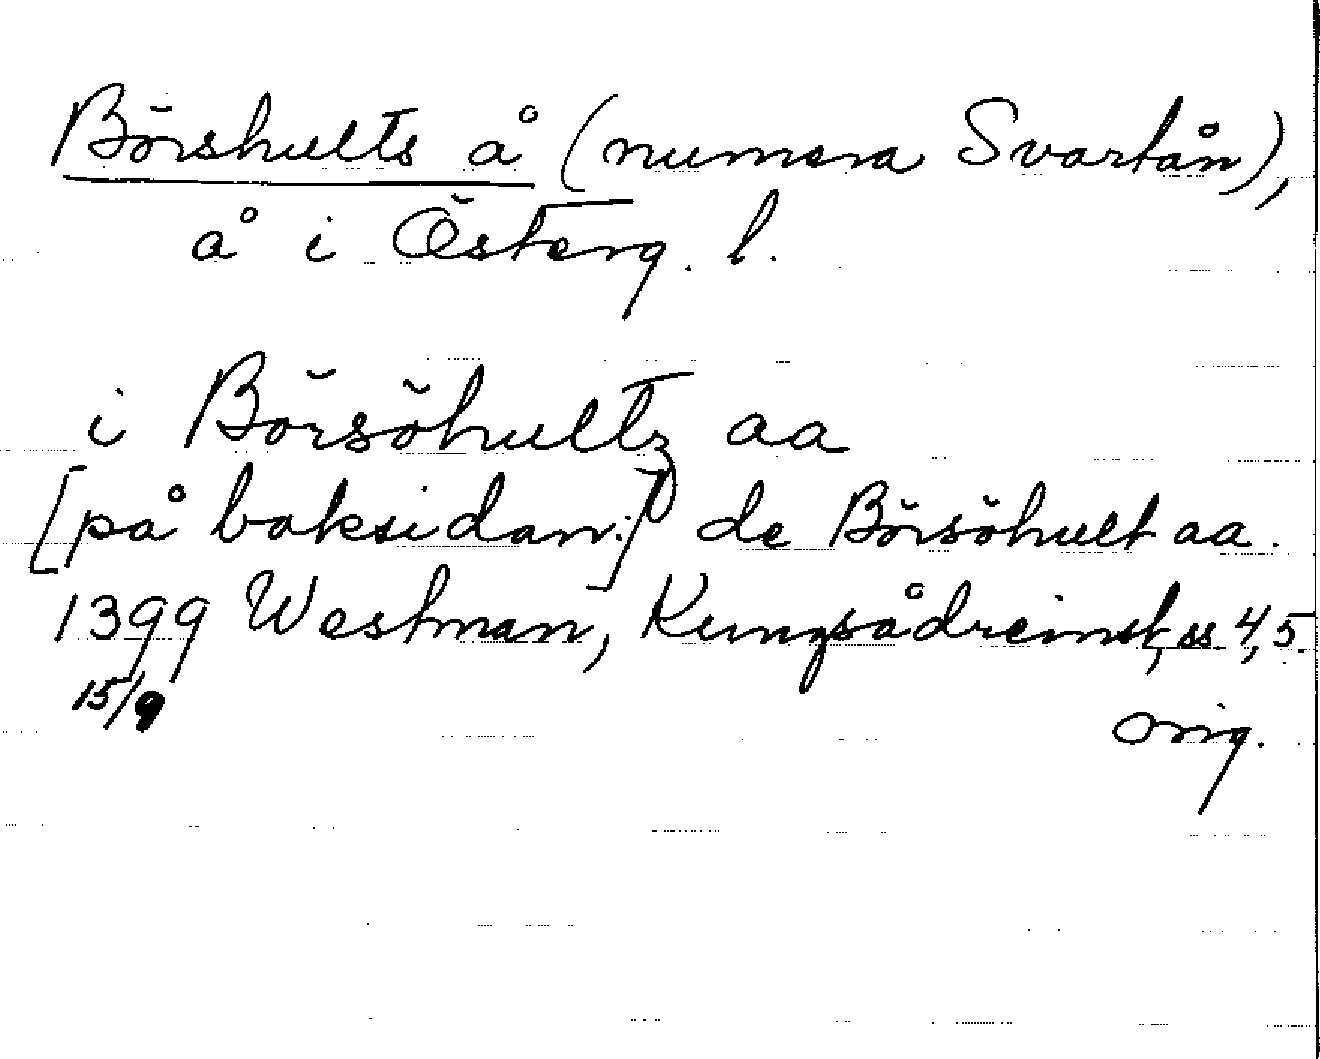 Börshults å (numera Svartån),
å i Österg. l.
i Börsöhultz aa
[på baksidan:] de Börsöhult aa.
1399 Westman, Kungsådreinst, ss. 4, 5.
15/9
orig.